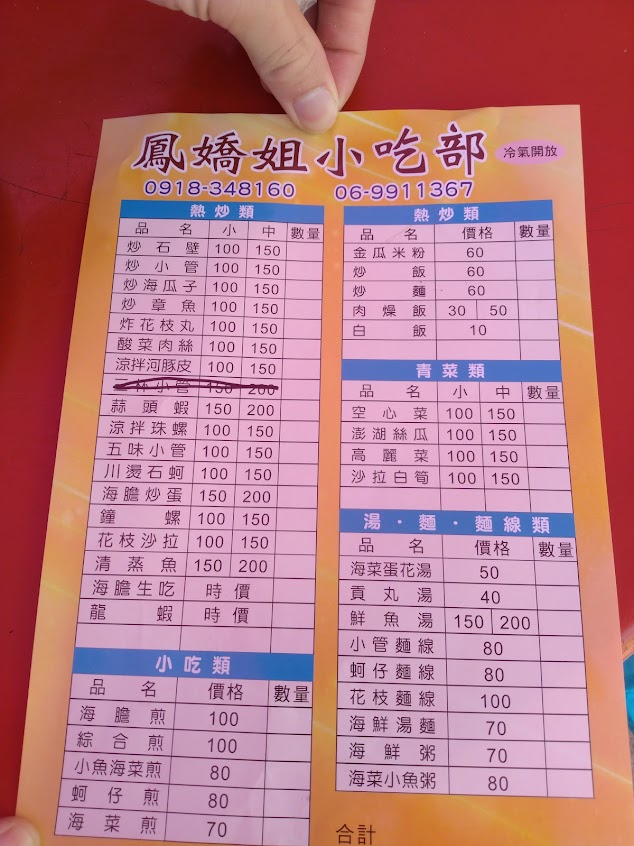 鳳嬌姐小吃部 冷氣開放
0918-348160 06-9911367
熱炒類
品名 小 中 數量
炒石壁 100 150
炒小管 100 150
炒海瓜子 100 150
炒章魚 100 150
炸花枝丸 100 150
酸菜肉絲 100 150
涼拌河豚皮 100 150
小管 150 200
蒜頭蝦 150 200
涼拌珠螺 100 150
五味小管 100 150
川燙石蚵 100 150
海膽炒蛋 150 200
鐘螺 100 150
花枝沙拉 100 150
清蒸魚 150 200
海膽生吃 時價
龍蝦 時價
小吃類
品名 價格 數量
海膽煎 100
綜合煎 100
小魚海菜煎 80
蚵仔煎 80
海菜煎 70
熱炒類
品名 價格 數量
金瓜米粉 60
炒飯 60
炒麵 60
肉燥飯 30 50
白飯 10
青菜類
品名 小 中 數量
空心菜 100 150
澎湖絲瓜 100 150
高麗菜 100 150
沙拉白筍 100 150
湯・麵・麵線類
品名 價格 數量
海菜蛋花湯 50
貢丸湯 40
鮮魚湯 150 200
小管麵線 80
蚵仔麵線 80
花枝麵線 100
海鮮湯麵 70
海鮮粥 70
海菜小魚粥 80
合計